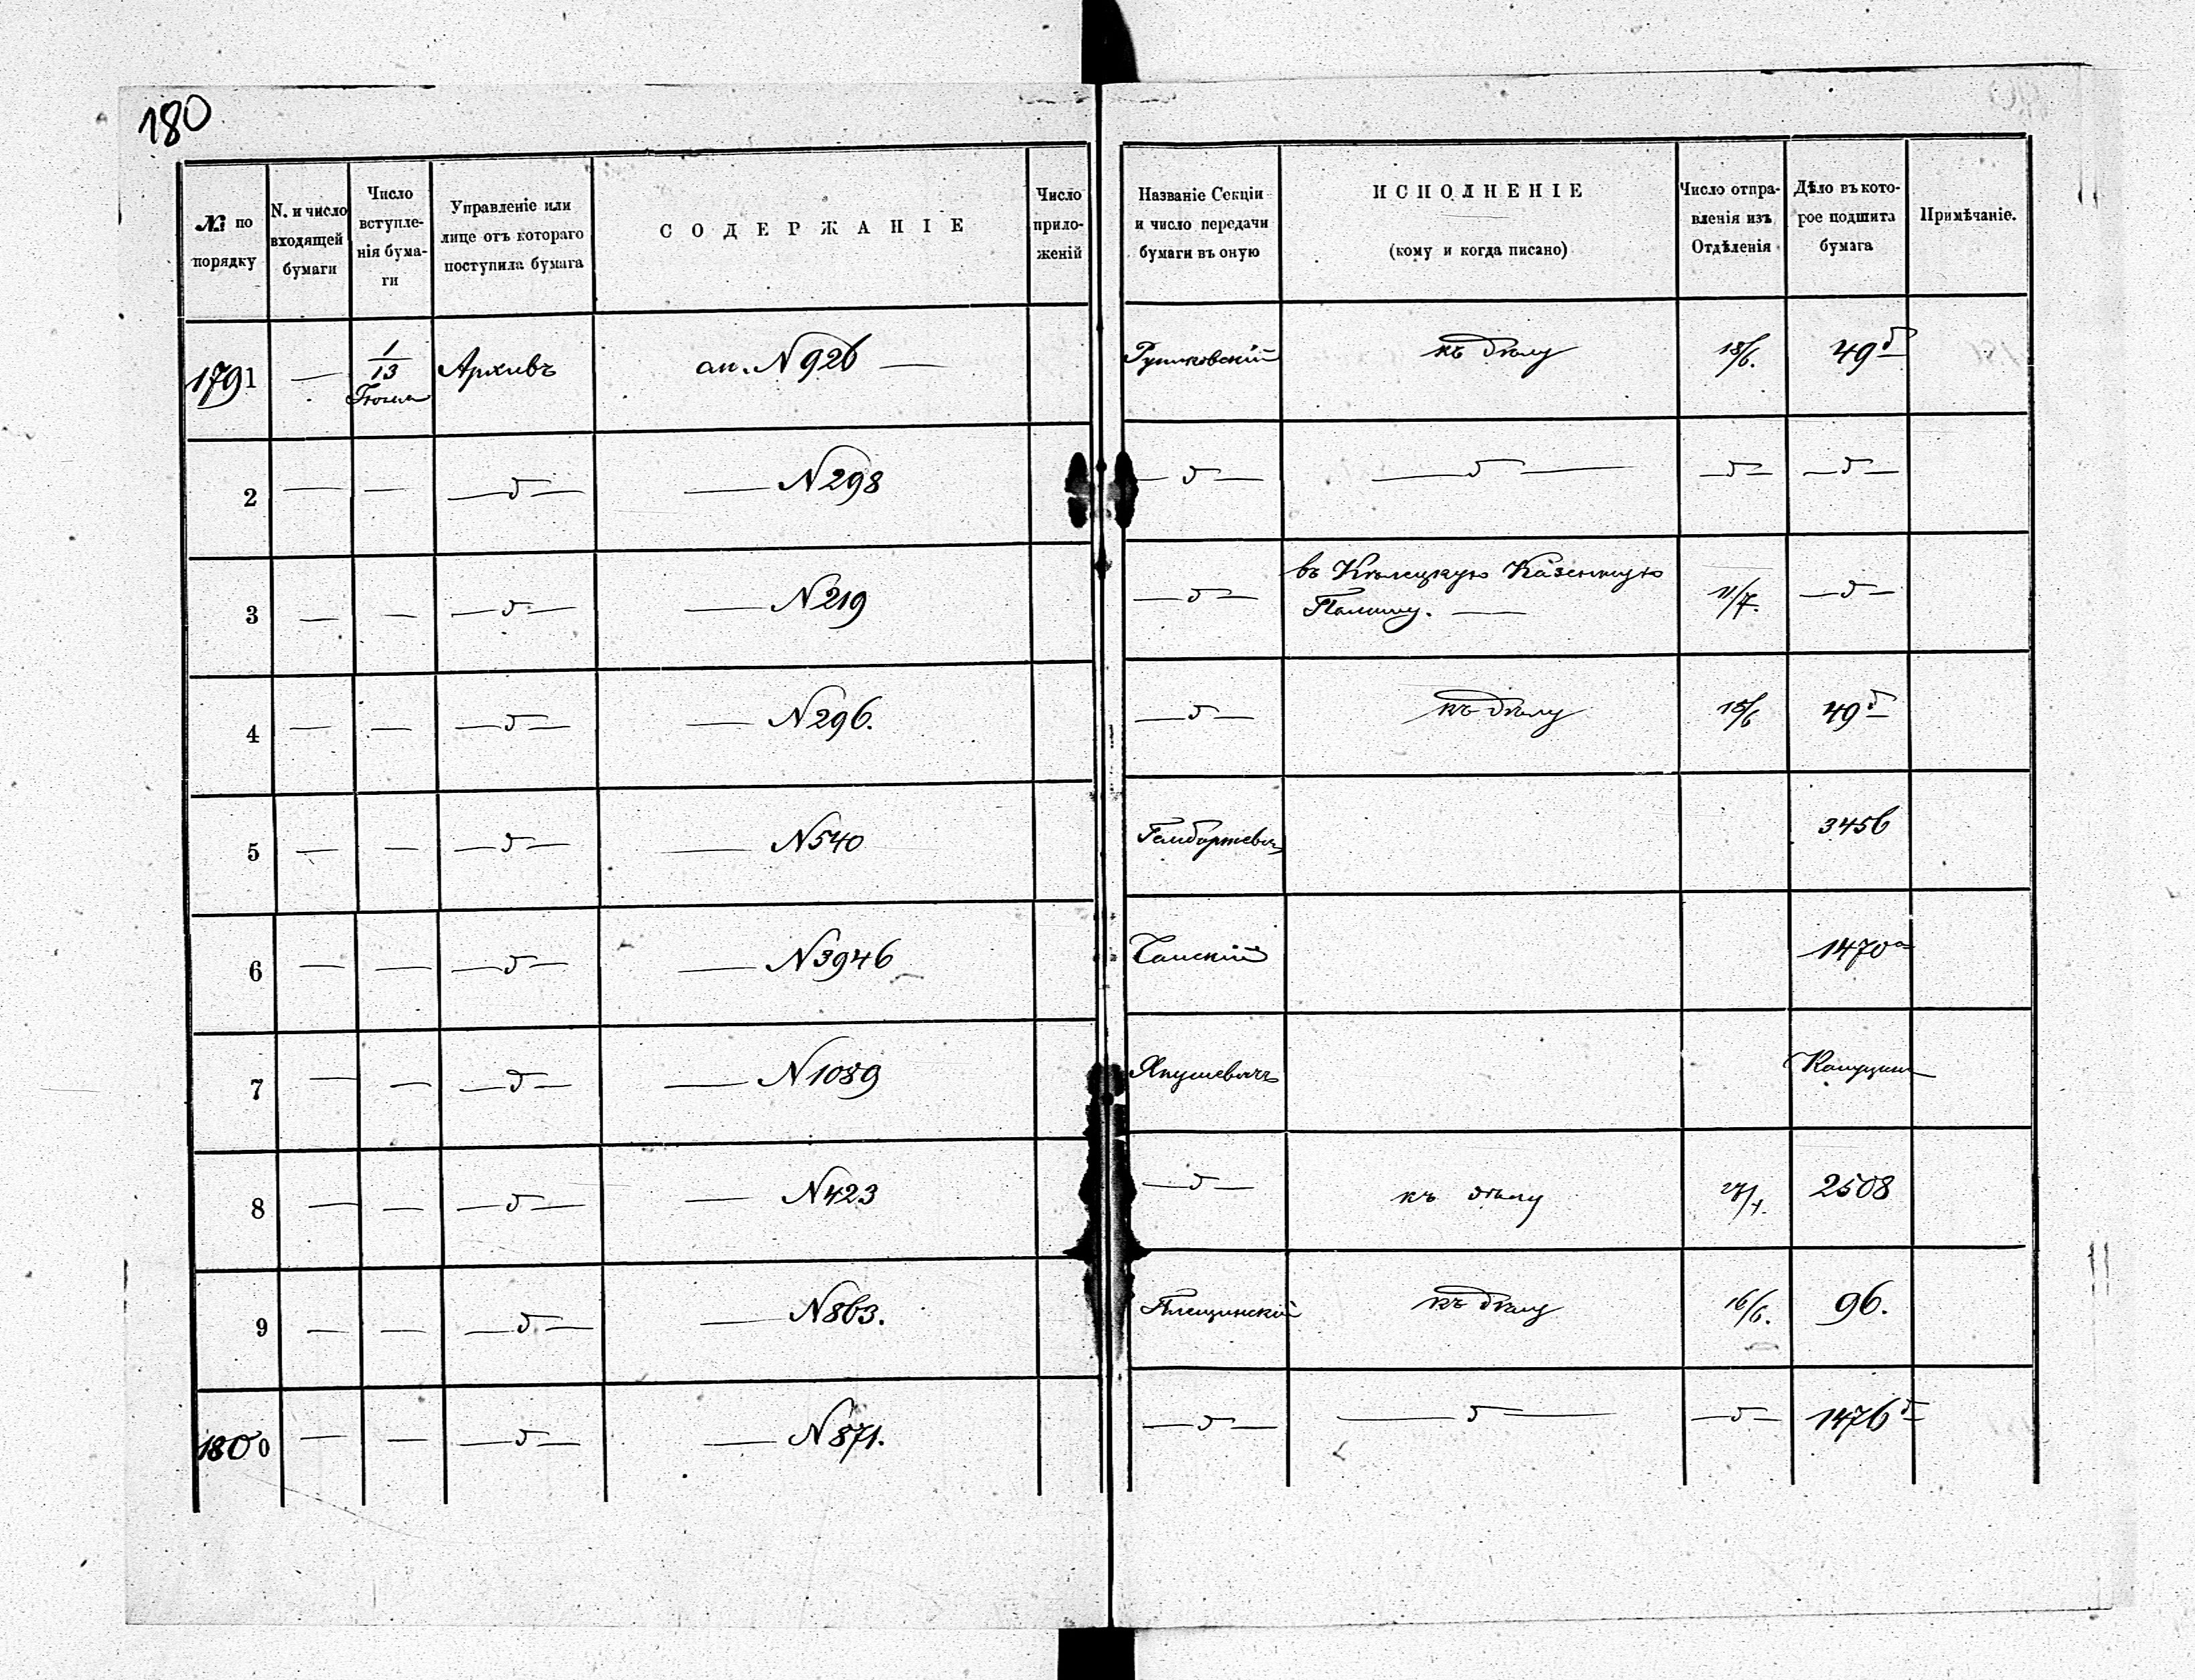 180
№ по порядку
N. и число входящей бумаги
Число вступле-
нія бума-
ги
Управленіе или
лице отъ котораго
поступила бумага
СОДЕРЖАНІЕ
Число
прило-
женій
Названіе Секціи
и число передачи
бумаги въ оную
ИСПОЛНЕНІЕ
(кому и когда писано)
Число отпра-
вленія изъ
Отдѣленія
Дѣло въ кото-
рое подшита
бумага
Примѣчаніе.
1791 — 1/13 Іюня Архивъ ап. N 926 — къ дѣлу 18/6. 49 б
2 — — — " — — N 298 — " — — " — — " — — " —
3 — — — " — — N 219 — " — въ Кѣлецкую Казенную
Палату. — 11/7. — " —
4 — — — " — — N 296. — " — къ дѣлу 18/6 49 б
5 — — — " — — N 540 3456
6 — — — " — — N 3946 1470 а
7 — — — " — — N 1089 Янушевичъ
8 — — — " — — N 423 — " — къ дѣлу 2508
9 — — — " — — N 863. Плещинскій къ дѣлу 16/6. 96.
1800 — — — " — — N 871. — " — — " — — " — 1476 б